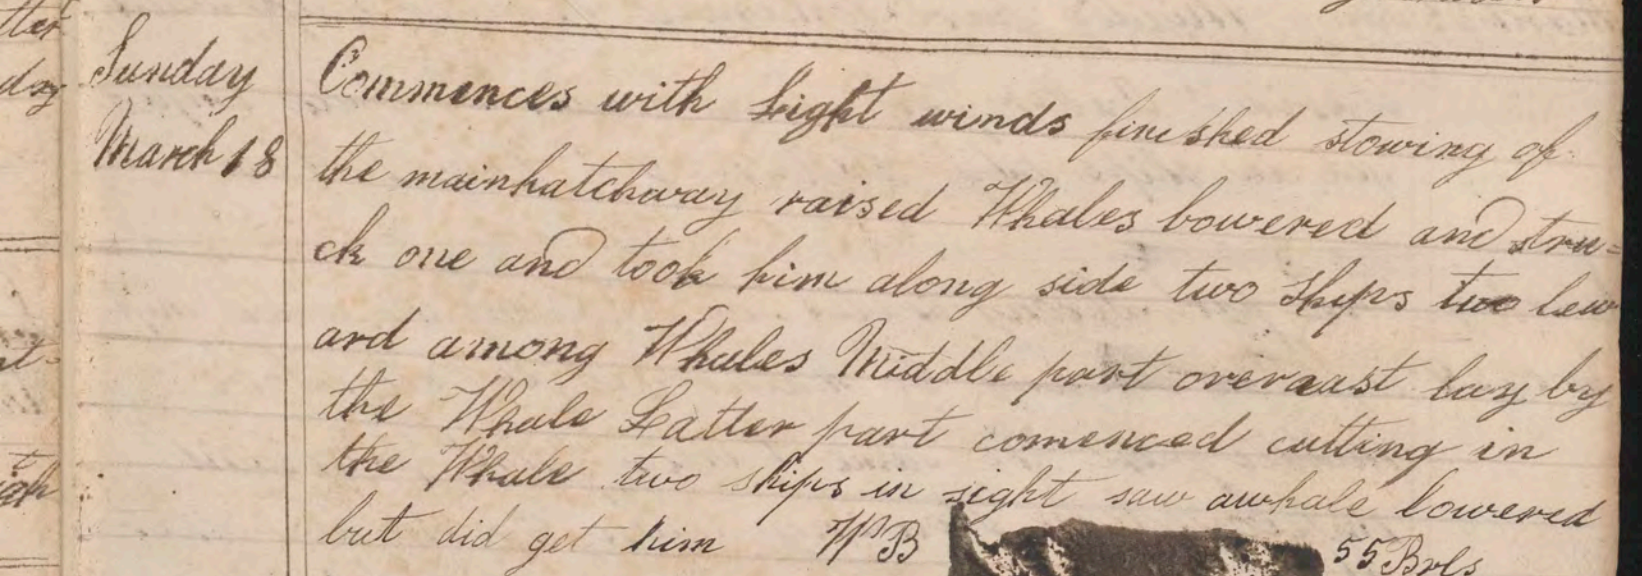 Sunday
March 18
Commences with Light winds finished stowing of
the mainhatchway raised Whales lowered and stru=
ck one and took him along side two ships two lew
ard among Whales Middle part overcast lay by
the Whale Latter part comenced cutting in
the Whale two ships in sight saw awhale lowered
but did get him WB 55 Brls